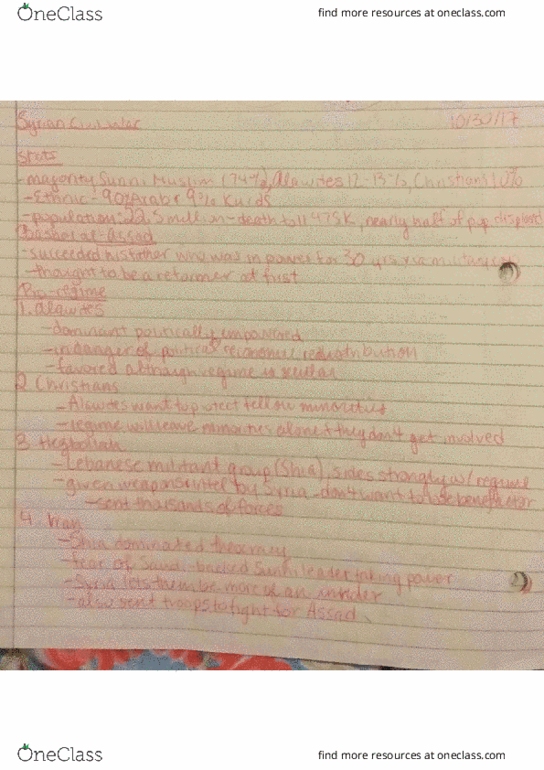 OneClass
find more resources at oneclass.com
Syrian Civil War 10/30/17
Stats
-majority Sunni Muslim (74%), Alawites 12-13%, Christians 10%
-Ethnic-90% Arab & 9% Kurds
-population: 22.5 million-death toll 475K, nearly half of pop displaced
Bashar al-Assad
-succeeded his father who was in power for 30 yrs via military
-thought to be a reformer at first
Pro-regime
1. Alawites
-dominant politically empowered
-in danger of political redistribution
-favored although regime is secular
2 Christians
-Alawites want to protect fellow minorities
-regime will leave minorities alone if they don't get involved
3. Hezbollah
-Lebanese militant group (Shia), sides strongly w/ regime
-given weapons by Syria-don't want to lose benefactor
-sent thousands of forces
4. Iran
-Shia dominated theocracy
-fear of Saudi-backed Sunni leader taking power
-Syria lets them be more of an insider
-also sent troops to fight for Assad
OneClass
find more resources at oneclass.com